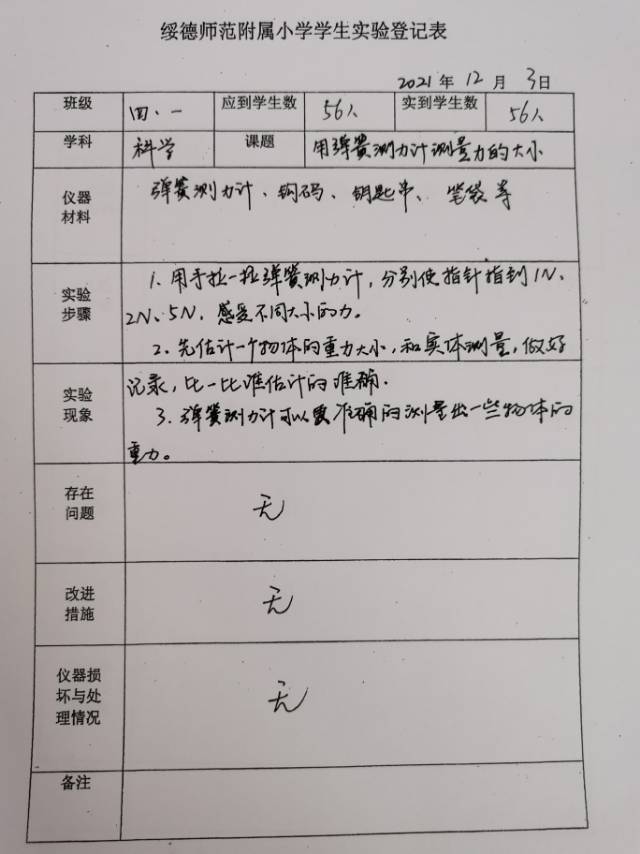 绥德师范附属小学学生实验登记表
2021 年 12 月 3 日
班级 四、一 应到学生数 56人 实到学生数 56人
学科 科学 课题 用弹簧测力计测量力的大小
仪器
材料
弹簧测力计、钩码、钥匙串、笔袋等
实验
步骤
1. 用手拉一拉弹簧测力计,分别使指针指到1N、
2N、5N,感受不同大小的力。
2. 先估计一个物体的重力大小,和实体测量,做好
实验
现象
记录,比一比谁估计的准确.
3. 弹簧测力计可以准确的测量出一些物体的
重力。
存在
问题
无
改进
措施
无
仪器损
坏与处
理情况
无
备注